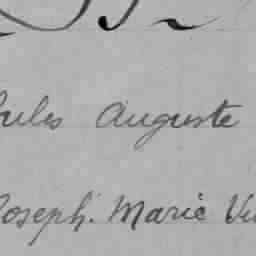 Jules Auguste
Joseph. Marie